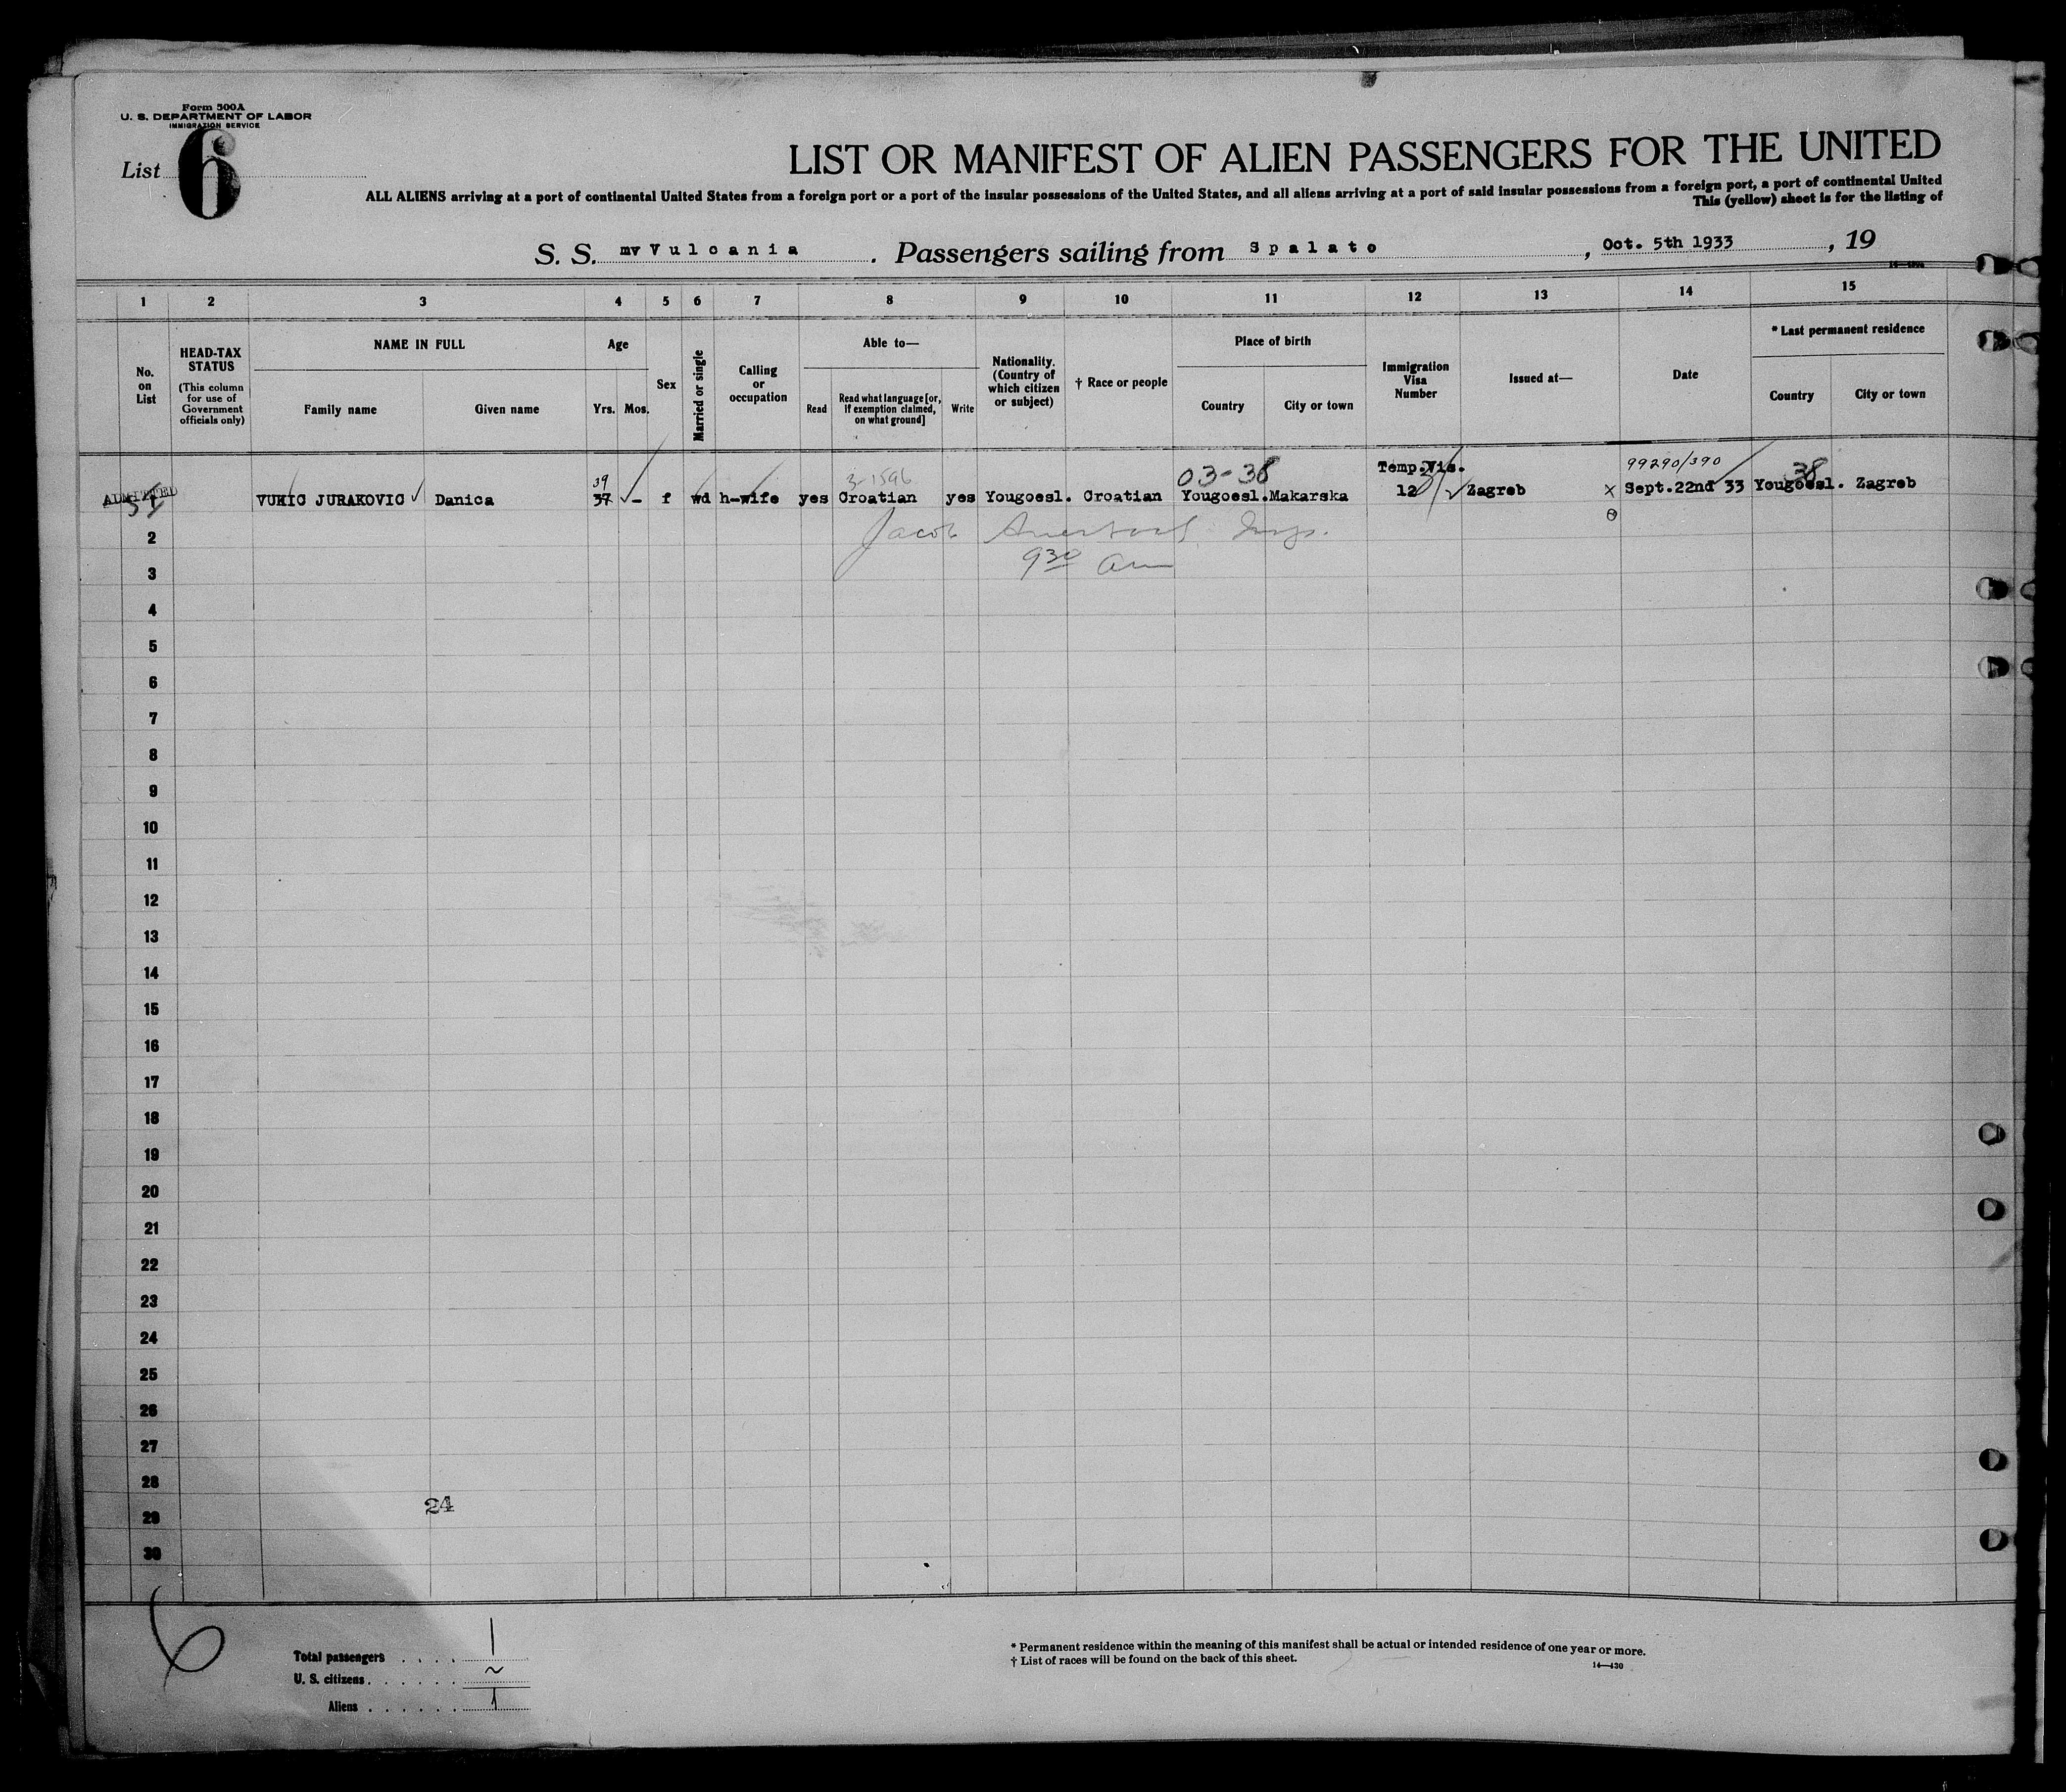 Form 500A
U. S. DEPARTMENT OF LABOR
IMMIGRATION SERVICE
List 6
LIST OR MANIFEST OF ALIEN PASSENGERS FOR THE UNITED
ALL ALIENS arriving at a port of continental United States from a foreign port or a port of the insular possessions of the United States, and all aliens arriving at a port of said insular possessions from a foreign port, a port of continental United
This (yellow) sheet is for the listing of
S. S. mv Vulcania . Passengers sailing from Spalato , Oct. 5th 1933 , 19
1 2 3 4 5 6 7 8 9 10 11 12 13 14 15
No. on List
HEAD-TAX STATUS
(This column for use of Government officials only)
NAME IN FULL
Family name Given name
Age
Yrs. Mos.
Sex
Married or single
Calling or occupation
Able to—
Read
Read what language [or, if exemption claimed, on what ground]
Write
Nationality. (Country of which citizen or subject)
† Race or people
Place of birth
Country City or town
Immigration Visa Number
Issued at—
Date
* Last permanent residence
Country City or town
39 3-1596 03-38 Temp.Vis. 99290/390 38
ADMITTED VUKIC JURAKOVIC ✓ Danica 37 ✓ - f wd h-wife yes Croatian yes Yougoesl. Croatian Yougoesl. Makarska 12 ✓ Zagreb x Sept.22nd 33 Yougoesl. Zagreb
2 Jacob Insp.
3 9 30 am
4
5
6
7
8
9
10
11
12
13
14
15
16
17
18
19
20
21
22
23
24
25
26
27
28
24
29
30
6
Total passengers . . . . 1
U. S. citizens . . . . . . ~
Aliens . . . . . . 1
* Permanent residence within the meaning of this manifest shall be actual or intended residence of one year or more.
† List of races will be found on the back of this sheet.
14—430